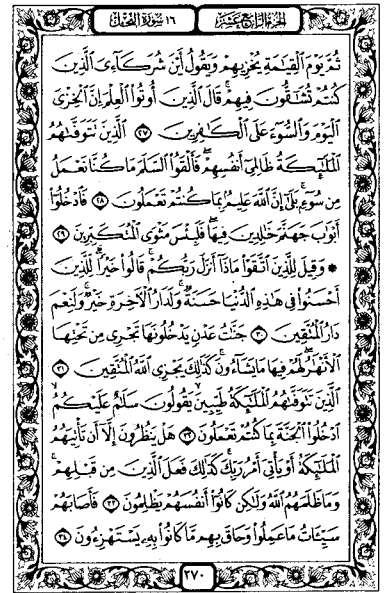 الجزء الرابع عشر
١٦ سورة النحل
ثُمَّ يَوْمَ ٱلْقِيَٰمَةِ يُخْزِيهِمْ وَيَقُولُ أَيْنَ شُرَكَآءِىَ ٱلَّذِينَ
كُنتُمْ تُشَٰٓقُّونَ فِيهِمْ ۚ قَالَ ٱلَّذِينَ أُوتُوا۟ ٱلْعِلْمَ إِنَّ ٱلْخِزْىَ
ٱلْيَوْمَ وَٱلسُّوٓءَ عَلَى ٱلْكَٰفِرِينَ ٢٧ ٱلَّذِينَ تَتَوَفَّىٰهُمُ
ٱلْمَلَٰٓئِكَةُ ظَالِمِىٓ أَنفُسِهِمْ ۖ فَأَلْقَوُا۟ ٱلسَّلَمَ مَا كُنَّا نَعْمَلُ
مِن سُوٓءٍۭ ۚ بَلَىٰٓ إِنَّ ٱللَّهَ عَلِيمٌۢ بِمَا كُنتُمْ تَعْمَلُونَ ٢٨ فَٱدْخُلُوٓا۟
أَبْوَٰبَ جَهَنَّمَ خَٰلِدِينَ فِيهَا ۖ فَلَبِئْسَ مَثْوَى ٱلْمُتَكَبِّرِينَ ٢٩
۞ وَقِيلَ لِلَّذِينَ ٱتَّقَوْا۟ مَاذَآ أَنزَلَ رَبُّكُمْ ۚ قَالُوا۟ خَيْرًا ۗ لِّلَّذِينَ
أَحْسَنُوا۟ فِى هَٰذِهِ ٱلدُّنْيَا حَسَنَةٌ ۚ وَلَدَارُ ٱلْءَاخِرَةِ خَيْرٌ ۚ وَلَنِعْمَ
دَارُ ٱلْمُتَّقِينَ ٣٠ جَنَّٰتُ عَدْنٍ يَدْخُلُونَهَا تَجْرِى مِن تَحْتِهَا
ٱلْأَنْهَٰرُ ۖ لَهُمْ فِيهَا مَا يَشَآءُونَ ۚ كَذَٰلِكَ يَجْزِى ٱللَّهُ ٱلْمُتَّقِينَ ٣١
ٱلَّذِينَ تَتَوَفَّىٰهُمُ ٱلْمَلَٰٓئِكَةُ طَيِّبِينَ ۙ يَقُولُونَ سَلَٰمٌ عَلَيْكُمُ
ٱدْخُلُوا۟ ٱلْجَنَّةَ بِمَا كُنتُمْ تَعْمَلُونَ ٣٢ هَلْ يَنظُرُونَ إِلَّآ أَن تَأْتِيَهُمُ
ٱلْمَلَٰٓئِكَةُ أَوْ يَأْتِىَ أَمْرُ رَبِّكَ ۚ كَذَٰلِكَ فَعَلَ ٱلَّذِينَ مِن قَبْلِهِمْ ۚ
وَمَا ظَلَمَهُمُ ٱللَّهُ وَلَٰكِن كَانُوٓا۟ أَنفُسَهُمْ يَظْلِمُونَ ٣٣ فَأَصَابَهُمْ
سَيِّـَٔاتُ مَا عَمِلُوا۟ وَحَاقَ بِهِم مَّا كَانُوا۟ بِهِۦ يَسْتَهْزِءُونَ ٣٤
٢٧٠